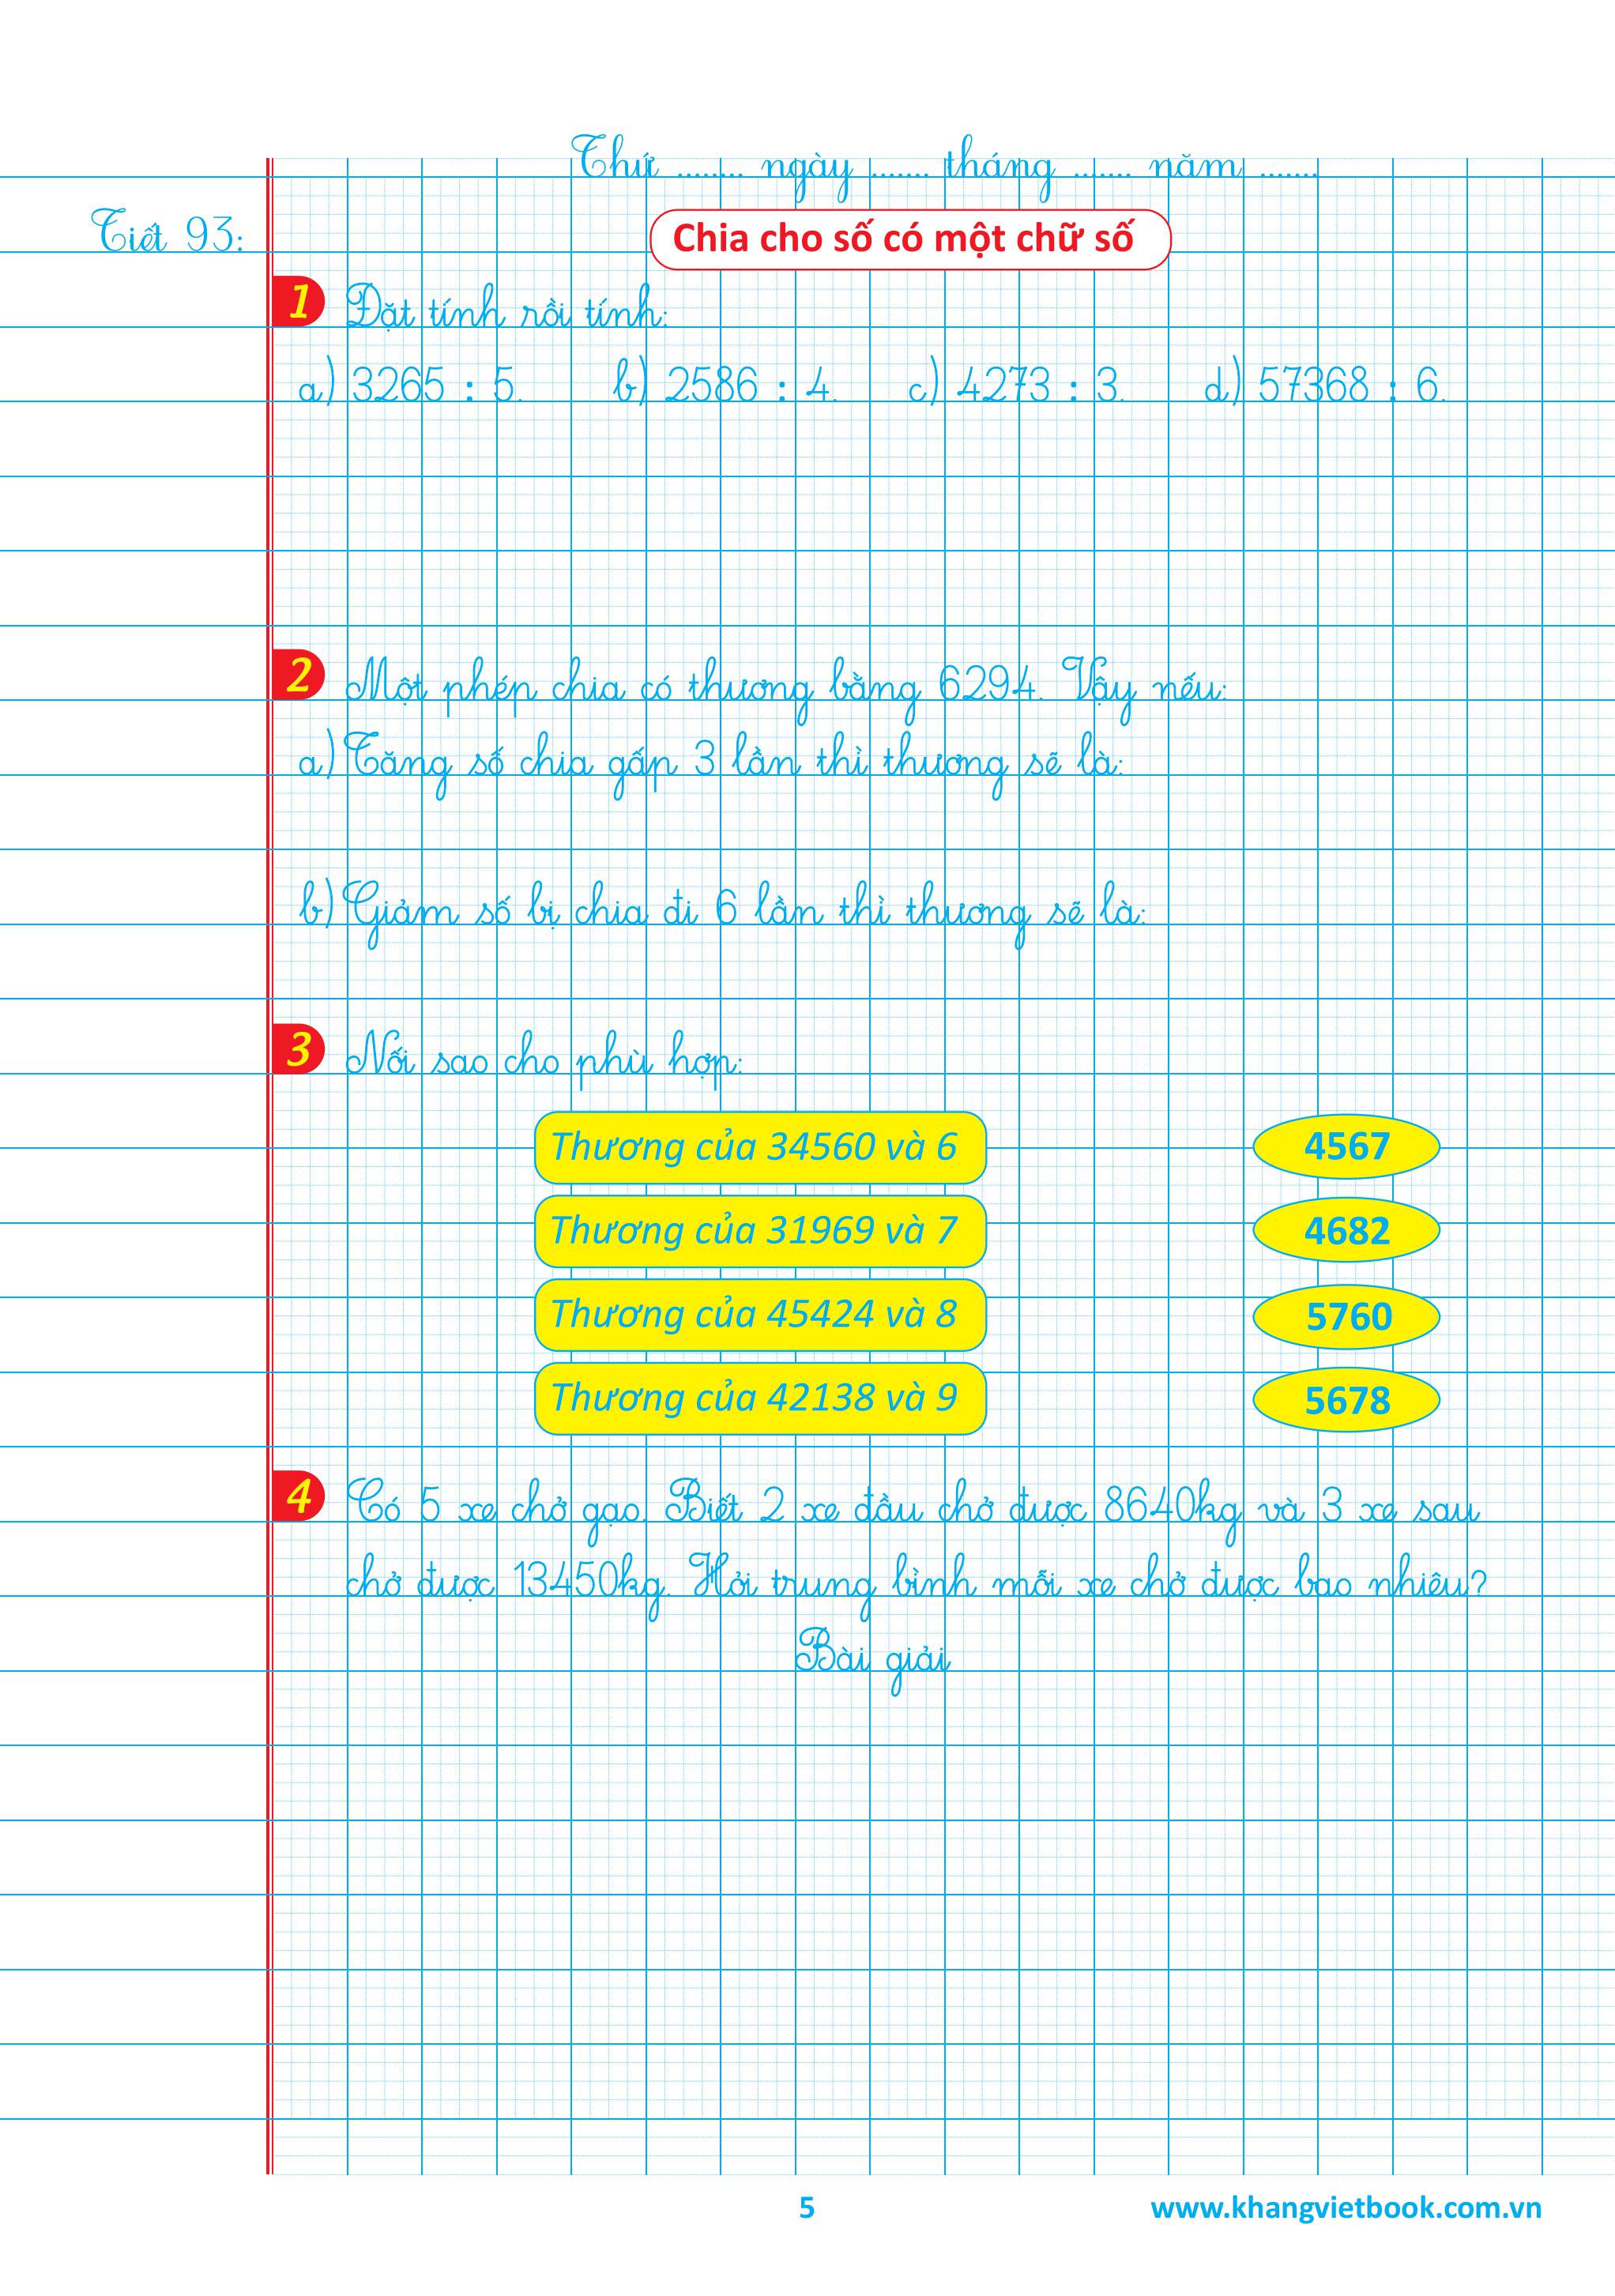 Thứ ........ ngày ....... tháng ....... năm .......
Tiết 93:
Chia cho số có một chữ số
1 Đặt tính rồi tính:
a) 3265 : 5. b) 2586 : 4. c) 4273 : 3. d) 57368 : 6.
2 Một phép chia có thương bằng 6294. Vậy nếu:
a) Tăng số chia gấp 3 lần thì thương sẽ là:
b) Giảm số bị chia đi 6 lần thì thương sẽ là:
3 Nối sao cho phù hợp:
Thương của 34560 và 6 4567
Thương của 31969 và 7 4682
Thương của 45424 và 8 5760
Thương của 42138 và 9 5678
4 Có 5 xe chở gạo. Biết 2 xe đầu chở được 8640kg và 3 xe sau
chở được 13450kg. Hỏi trung bình mỗi xe chở được bao nhiêu?
Bài giải
5 www.khangvietbook.com.vn